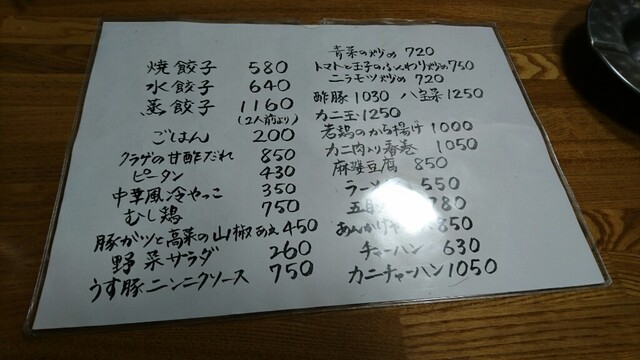 焼餃子 580
水餃子 640
蒸餃子 1160
(2人前より)
ごはん 200
クラゲの甘酢だれ 850
ピータン 430
中華風冷やっこ 350
むし鶏 750
豚ガツと高菜の山椒あえ 450
野菜サラダ 260
うす豚ニンニクソース 750
青菜の炒め 720
トマトと玉子のふんわり炒め 750
ニラモツ炒め 720
酢豚 1030 八宝菜 1250
カニ玉 1250
若鶏のから揚げ 1000
カニ肉入り春巻 1050
麻婆豆腐 850
ラーメン 550
五目 780
あんかけヤ 850
チャーハン 630
カニチャーハン 1050